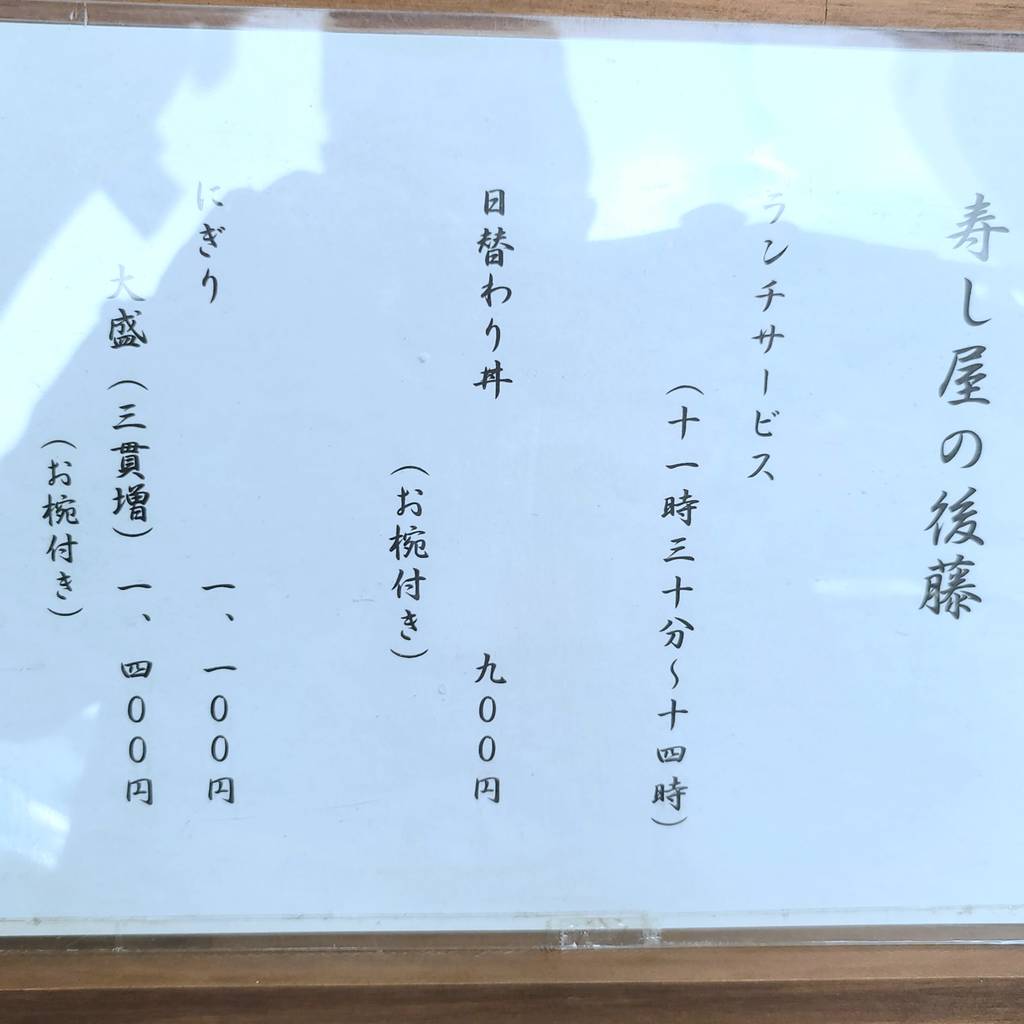 寿し屋の後藤
ランチサービス
（十一時三十分～十四時）
日替わり丼　九００円
（お椀付き）
にぎり　一、一００円
大盛（三貫増）一、四００円
（お椀付き）